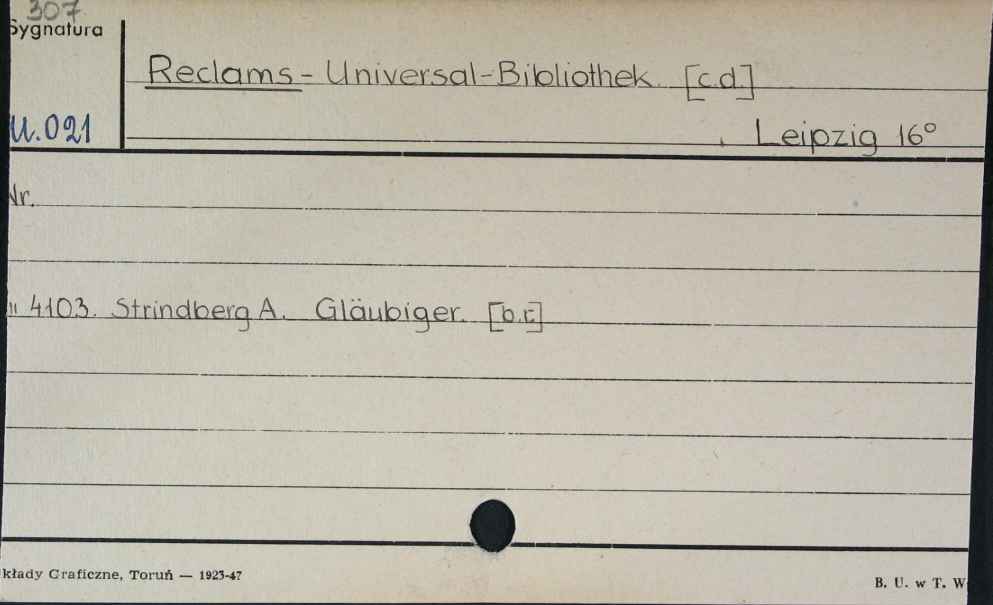 307
Sygnatura
Reclams - Universal-Bibliothek. [c.d.]
U.021
Leipzig 16°
Nr.
" 4103. Strindberg A. Gläubiger. [b.r.]
kłady Graficzne, Toruń — 1923-47
B. U. w T. W